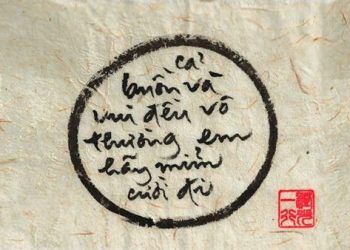 cả
buồn và
vui đều vô
thường em
hãy mỉm
cười đi